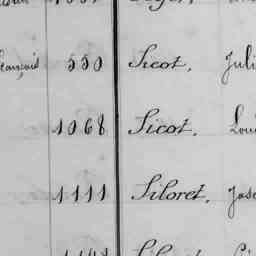 550 Sicot, Juli
1068 Sicot, Lou
1111 Siloret, Jose